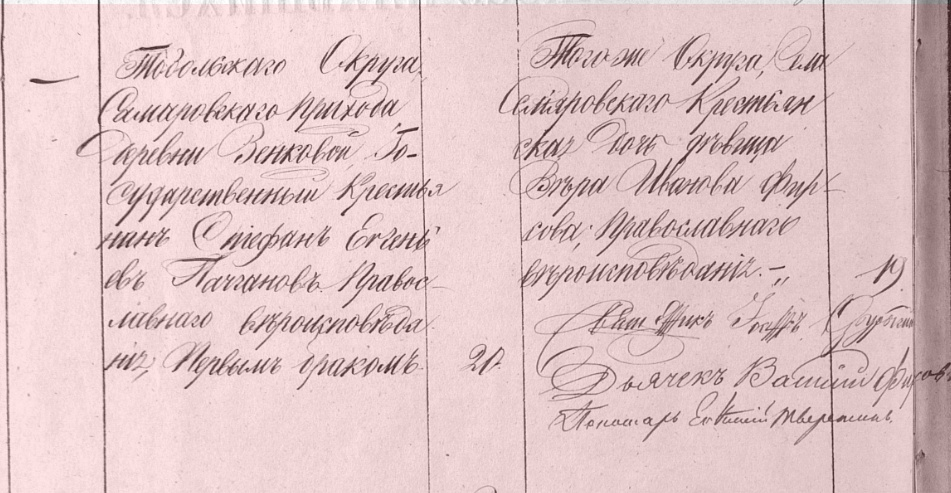 Тобольскаго Округа,
Самаровскаго прихода
Деревни Венковой, Го-
сударственный Крестья
нинъ Стефанъ Евгень
евъ Пачгановъ Правос-
лавнаго вѣроисповѣда
нія, Первымъ бракомъ. 20.
Того же Округа, Села
Самаровскаго Крестьян
ская дочь дѣвица
Вѣра Иванова Фир-
сова, Православнаго
вѣроисповѣданія. 19.
Дьячекъ Василій Фирсовъ
Пономарь Евѳимій Тверетинъ.